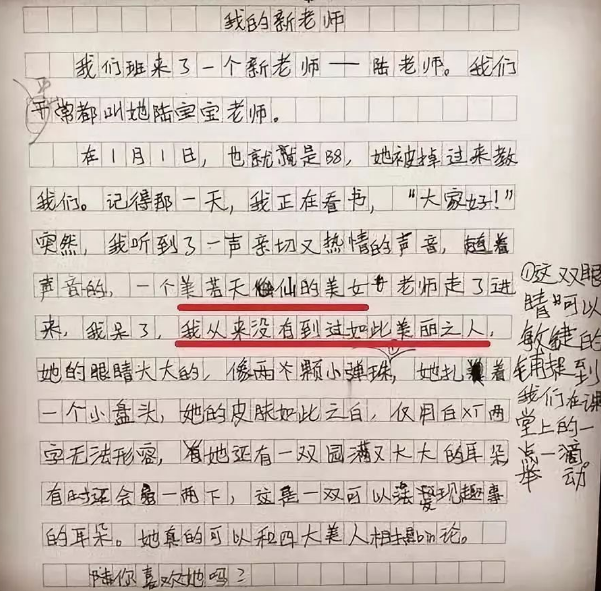 我的新老师
我们班来了一个新老师——陆老师。我们
平常都叫她陆宝宝老师。
在1月1日，也就是38，她被掉过来教
我们。记得那一天，我正在看书，“大家好！”
突然，我听到了一声亲切又热情的声音，随着
声音的，一个美若天仙的美女老师走了进
来，我呆了，我从来没有到过如此美丽之人，
她的眼睛大大的，像两个颗小弹珠，她扎着
一个小盘头，她的皮肤如此之白，仅用白XT两
字无法形容，她还有一双园满又大大的耳朵
有时还会一两下，这是一双可以发现趣事
的耳朵。她真的可以和四大美人相提bin论。
陆你喜欢她吗？
①这双眼
睛可以
敏健的
铺捉到
我们在课
堂上的一
点一滴。
举动